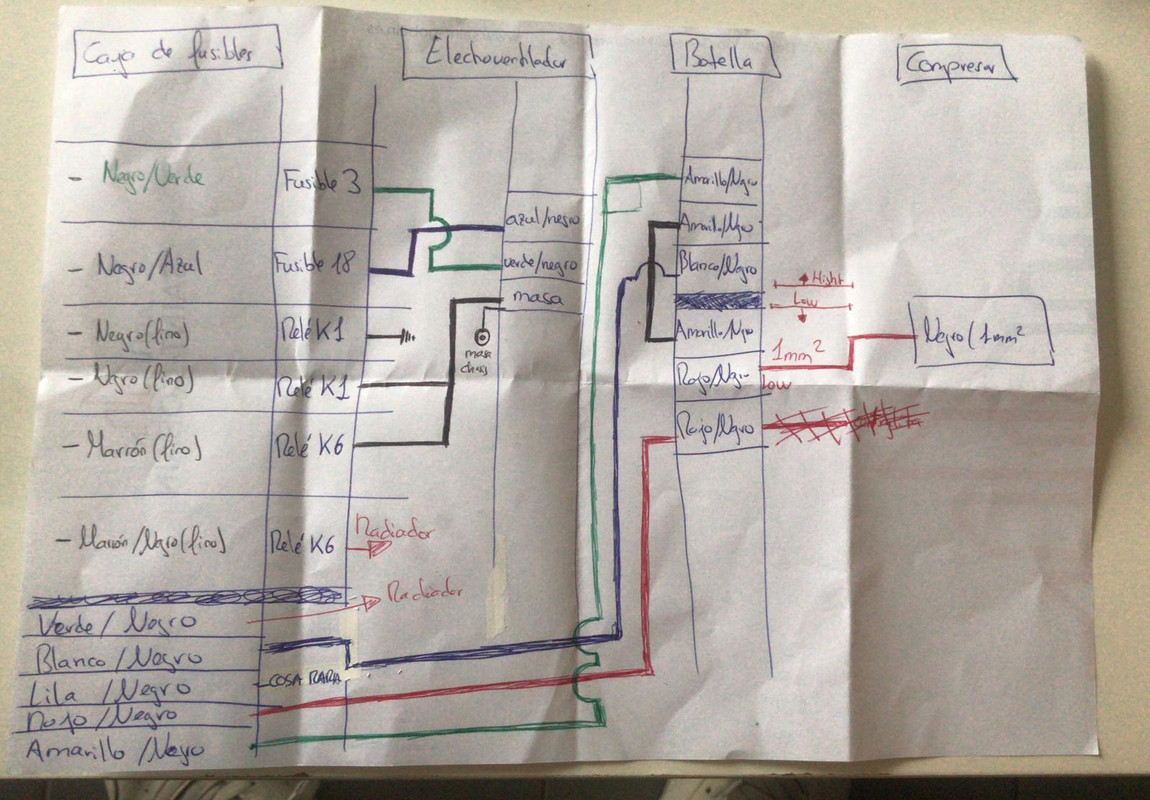 Caja de fusibles
Electroventilador
Botella
Compresor
- Negro/Verde
Fusible 3
- Negro/Azul
Fusible 18
- Negro (fino)
Relé K1
- Negro (fino)
Relé K1
- Marrón (fino)
Relé K6
- Marrón/Negro (fino)
Relé K6
Radiador
Radiador
Verde / Negro
Blanco / Negro
Lila / Negro
COSA RARA
Rojo / Negro
Amarillo / Negro
azul/negro
verde/negro
masa
masa
Amarillo/Ngro
Amarillo/Ngro
Blanco/Ngro
Amarillo/Ngro
Rojo/Ngro
Rojo/Ngro
Hight
Low
1mm²
Low
Negro (1mm²